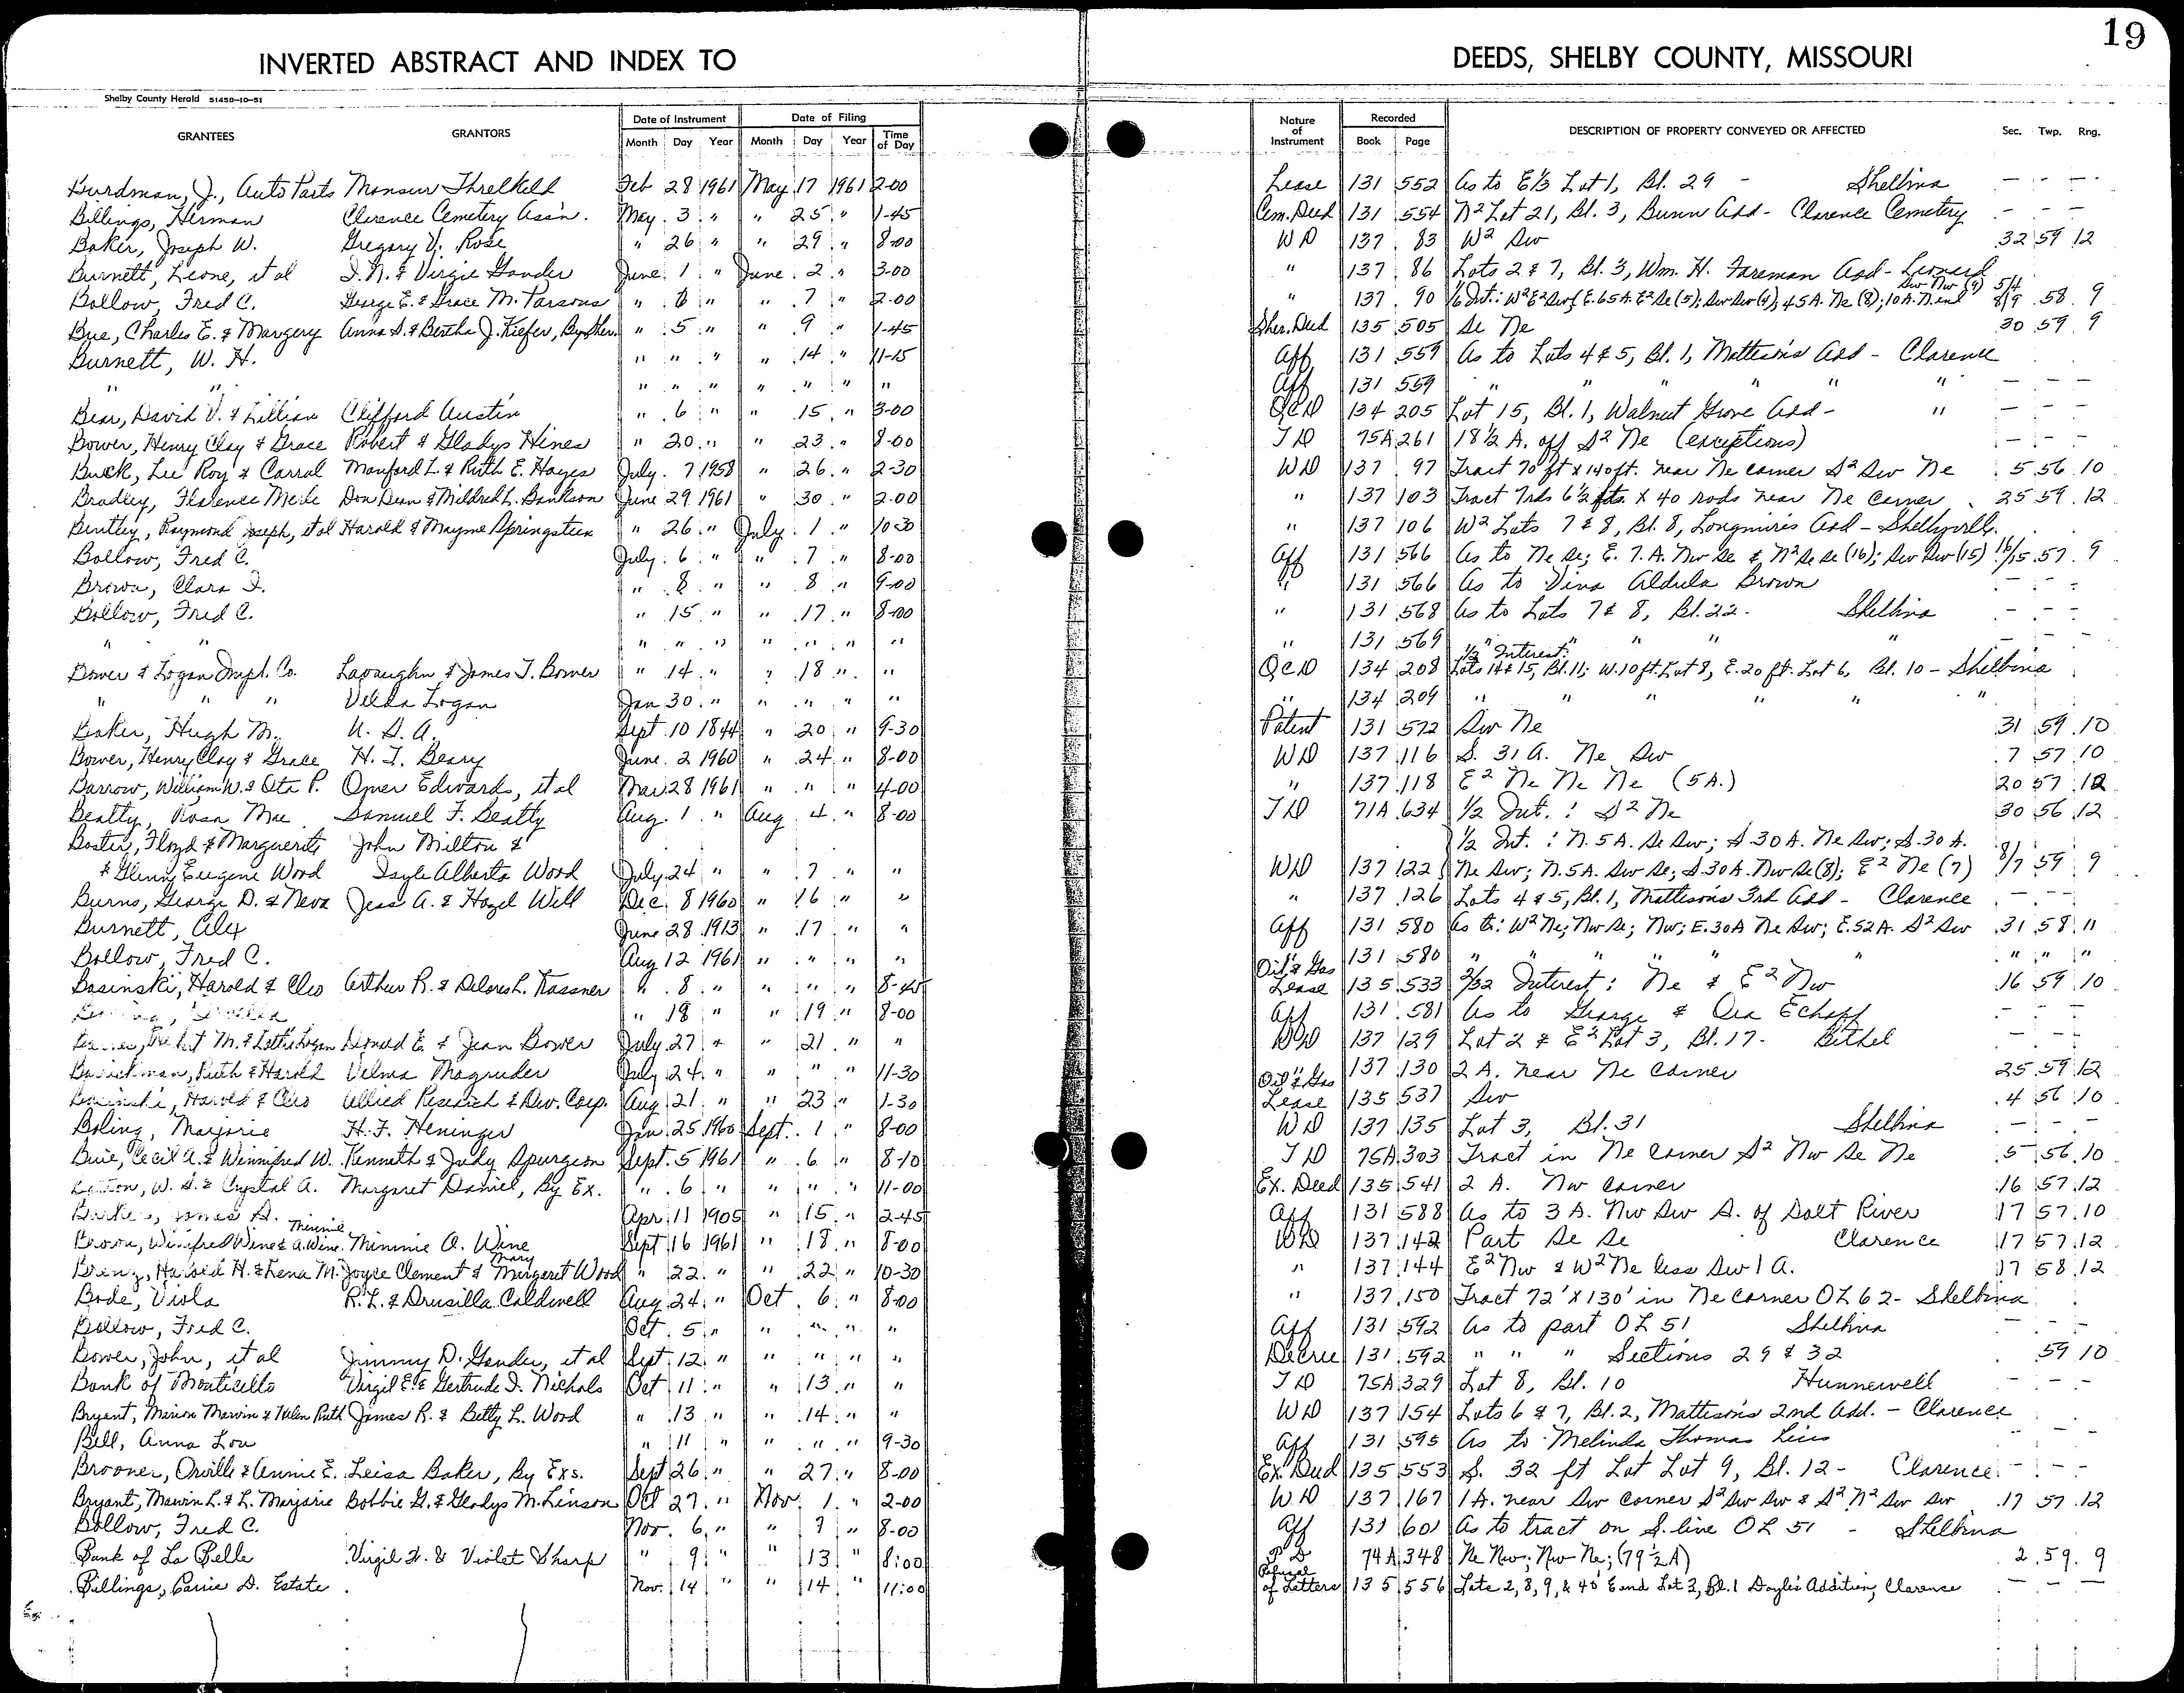 19
INVERTED ABSTRACT AND INDEX TO DEEDS, SHELBY COUNTY, MISSOURI
Shelby County Herald 51458-10-51
GRANTEES GRANTORS Date of Instrument Date of Filing Nature of Instrument Recorded DESCRIPTION OF PROPERTY CONVEYED OR AFFECTED Sec. Twp. Rng.
Month Day Year Month Day Year Time of Day Book Page
Burdman, J., Auto Parts Monsur Threlkeld Feb 28 1961 May 17 1961 2-00 Lease 131 552 As to E⅓ Lot 1, Bl. 29 - Shelbina - - -
Billings, Herman Clarence Cemetery Ass'n. May 3 " " 25 " 1-45 Cem. Deed 131 554 N² Lot 21, Bl. 3, Bunn Add - Clarence Cemetery - - -
Baker, Joseph W. Gregory V. Rose " 26 " " 29 " 8-00 WD 137 83 W² Sw 32 59 12
Burnett, Leone, et al I. N. & Virgie Gander June 1 " June 2 " 3-00 " 137 86 Lots 2 & 7, Bl. 3, Wm. H. Fareman Add - Leonard
Bollow, Fred C. George E. & Grace M. Parsons " 6 " " 7 " 2-00 " 137 90 1/6 Int.: W²E²Sw; E. 65A. E²Se (5); Sw Sw (4); 45A. Ne (8); 10A. N end Sw Nw (9) 5/4 8/9 58 9
Bue, Charles E. & Margery Anna S. & Bertha J. Kiefer, By Sher. " 5 " " 9 " 1-45 Sher. Deed 135 505 Se Ne 30 59 9
Burnett, W. H. " " " " 14 " 11-15 Aff 131 559 As to Lots 4 & 5, Bl. 1, Mattison's Add - Clarence
" " " " " " " " " Aff 131 559 " " " " " " - - -
Bear, David V. & Lillian Clifford Austin " 6 " " 15 " 3-00 QCD 134 205 Lot 15, Bl. 1, Walnut Grove Add - " - - -
Bower, Henry Clay & Grace Robert & Gladys Hines " 20 " " 23 " 8-00 TD 75A 261 18½ A. off S² Ne (exceptions) - - -
Buck, Lee Roy & Carral Manford L. & Ruth E. Hayes July 7 1958 " 26 " 2-30 WD 137 97 Tract 70 ft x 140 ft. near Ne corner S² Sw Ne 5 56 10
Bradley, Florence Merle Don Dean & Mildred L. Bankson June 29 1961 " 30 " 2-00 " 137 103 Tract 7rds 6½ fts. X 40 rods near Ne corner 25 59 12
Bentley, Raymond Joseph, et al Harold & Mayme Springsteen " 26 " July 1 " 10-30 " 137 106 W² Lots 7 & 8, Bl. 8, Longmire's Add - Shelbyville
Bollow, Fred C. July 6 " " 7 " 8-00 Aff 131 566 As to Ne Se; E. 7. A. Nw Se & N² Se Se (16); Sw Sw (15) 16/15 57 9
Brown, Clara I. " 8 " " 8 " 9-00 " 131 566 As to Vina Aldula Brown - - -
Bollow, Fred C. " 15 " " 17 " 8-00 " 131 568 As to Lots 7 & 8, Bl. 22 - Shelbina - - -
" " " " " " " " " " 131 569 " " " " " - - -
Bower & Logan Impl. Co. Lavaughn & James T. Bower " 14 " " 18 " " QCD 134 208 ½ Interest: Lots 14 & 15, Bl. 11; W. 10 ft. Lot 8, E. 20 ft. Lot 6, Bl. 10 - Shelbina
" " " Velda Logan Jan 30 " " " " " " 134 209 " " " " " "
Baker, Hugh M. U. S. A. Sept 10 1844 " 20 " 9-30 Patent 131 572 Sw Ne 31 59 10
Bower, Henry Clay & Grace H. T. Beary June 2 1960 " 24 " 8-00 WD 137 116 S. 31 A. Ne Sw 7 57 10
Barrow, William W. & Ota P. Omer Edwards, et al Mar 28 1961 " " " 4-00 " 137 118 E² Ne Ne Ne (5A.) 20 57 12
Beatty, Rosa Mae Samuel F. Beatty Aug. 1 " Aug 4 " 8-00 TD 71A 634 1/2 Int.: S² Ne 30 56 12
Boster, Floyd & Marguerite John Milton & 1/2 Int.: N. 5A. Se Sw; S. 30A. Ne Sw; S. 30A.
& Glenn Eugene Wood Doyle Alberta Wood July 24 " " 7 " " WD 137 122 Ne Sw; N. 5A. Sw Se; S. 30A. Nw Se (8); E² Ne (7) 8/7 59 9
Burns, George D. & Neva Jess A. & Hazel Will Dec. 8 1960 " 16 " " " 137 126 Lots 4 & 5, Bl. 1, Mattison's 3rd Add - Clarence - - -
Burnett, Alex June 28 1913 " 17 " " Aff 131 580 As to: W² Ne; Nw Se; Nw; E. 30A Ne Sw; E. 52A. S² Sw 31 58 11
Bollow, Fred C. Aug 12 1961 " " " " " 131 580 " " " " " " " " "
Basinski, Harold & Cleo Arthur R. & Delores L. Kassner " 8 " " " " 8-45 Oil & Gas Lease 135 533 2/32 Interest: Ne & E² Nw 16 59 10
" 18 " " 19 " 8-00 Aff 131 581 As to George & Ora Echoff - - -
M. & Lottie Logan Leonard E. & Jean Bower July 27 " " 21 " " WD 137 129 Lot 2 & E² Lot 3, Bl. 17 - Bethel - - -
Ruth & Harold Velma Magruder July 24 " " " " 11-30 " 137 130 2 A. near Ne Corner 25 59 12
Basinski, Harold & Cleo Allied Research & Dev. Corp. Aug 21 " " 23 " 1-30 Oil & Gas Lease 135 537 Sw 4 56 10
Boling, Marjorie H. F. Heninger Jan 25 1960 Sept. 1 " 8-00 WD 137 135 Lot 3, Bl. 31 Shelbina - - -
Buie, Cecil A. & Winnifred W. Kenneth & Judy Spurgeon Sept. 5 1961 " 6 " 8-10 TD 75A 303 Tract in Ne Corner S² Nw Se Ne 5 56 10
W. S. & Crystal A. Margaret Daniel, By Ex. " 6 " " " " 11-00 Ex. Deed 135 541 2 A. Nw Corner 16 57 12
James A. Apr 11 1905 " 15 " 2-45 Aff 131 588 As to 3A. Nw Sw S. of Salt River 17 57 10
Brown, Winifred Wine & Minnie A. Wine Minnie A. Wine Sept 16 1961 " 18 " 8-00 WD 137 142 Part Se Se Clarence 17 57 12
Brenz, Harold H. & Lena M. Joyce Clement & Mary Margaret Wood " 22 " " 22 " 10-30 " 137 144 E² Nw & W² Ne less Sw 1 A. 17 58 12
Bode, Viola R. L. & Drusilla Caldwell Aug 24 " Oct. 6 " 8-00 " 137 150 Tract 72' X 130' in Ne Corner OL 62 - Shelbina
Bollow, Fred C. Oct. 5 " " " " " Aff 131 592 As to part OL 51 Shelbina - - -
Bower, John, et al Jimmy D. Gander, et al Sept 12 " " " " " Decree 131 592 " " " Sections 29 & 32 59 10
Bank of Monticello Virgil E. & Gertrude I. Nichols Oct 11 " " 13 " " TD 75A 329 Lot 8, Bl. 10 Hunnewell - - -
Bryant, Marion Marvin & Helen Ruth James R. & Betty L. Wood " 13 " " 14 " " WD 137 154 Lots 6 & 7, Bl. 2, Mattison's 2nd Add. - Clarence
Bell, Anna Lou " 11 " " " " 9-30 Aff 131 595 As to Melinda Thomas - - -
Brooner, Orville & Annie E. Leisa Baker, By Exs. Sept 26 " " 27 " 8-00 Ex. Deed 135 553 S. 32 ft Lot Lot 9, Bl. 12 - Clarence - - -
Bryant, Marvin L. & L. Marjorie Bobbie G. & Gladys M. Linson Oct 27 " Nov. 1 " 2-00 WD 137 167 1A. near Sw Corner S² Sw Sw & S² N² Sw Sw 17 57 12
Bollow, Fred C. Nov. 6 " " 7 " 8-00 Aff 131 601 As to tract on S. line OL 51 - Shelbina
Bank of La Belle Virgil H. & Violet Sharp " 9 " " 13 " 8:00 74A 348 Ne Nw; Nw Ne; (79½A) 2 59 9
Billings, Carrie D. Estate Nov. 14 " " 14 " 11:00 Refusal of Letters 135 556 Lots 2, 8, 9, & 40' E end Lot 3, Bl. 1 Doyle's Addition, Clarence - - -